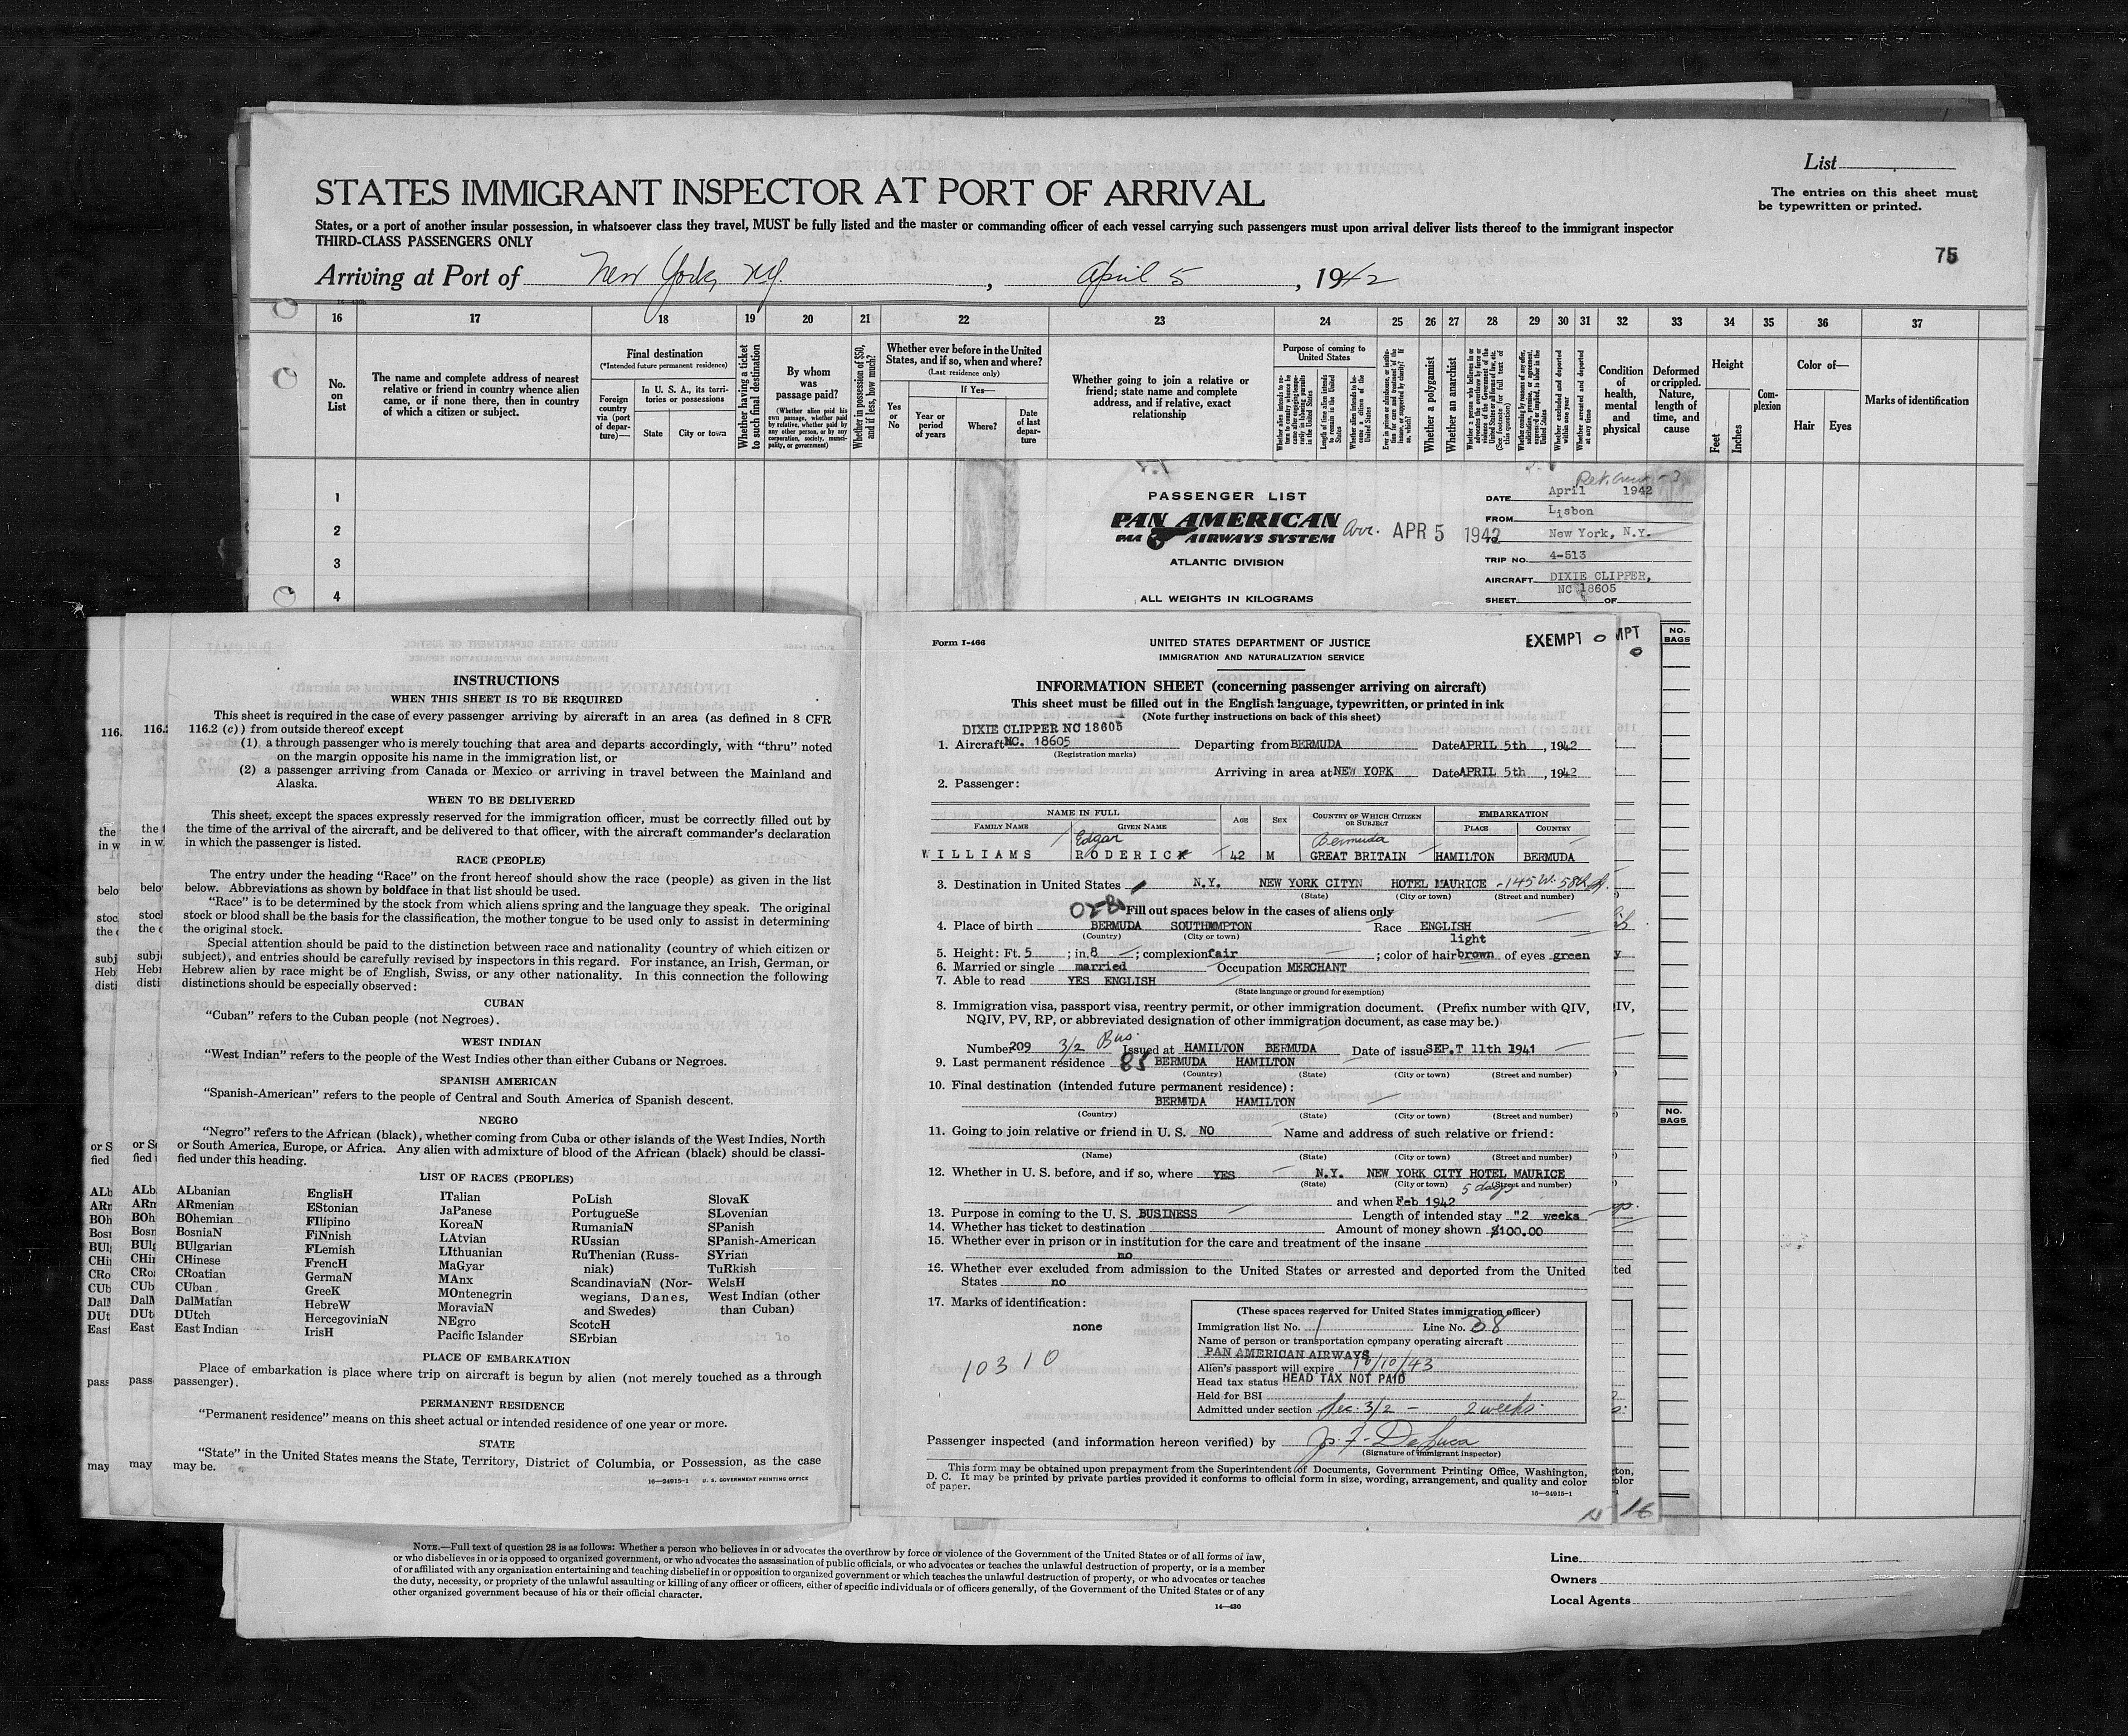 List
STATES IMMIGRANT INSPECTOR AT PORT OF ARRIVAL
The entries on this sheet must
be typewritten or printed.
States, or a port of another insular possession, in whatsoever class they travel, MUST be fully listed and the master or commanding officer of each vessel carrying such passengers must upon arrival deliver lists thereof to the immigrant inspector
THIRD-CLASS PASSENGERS ONLY
75
Arriving at Port of New York, NY. , April 5 , 1942
16 17 18 19 20 21 22 23 24 25 26 27 28 29 30 31 32 33 34 35 36 37
No. on List
The name and complete address of nearest
relative or friend in country whence alien
came, or if none there, then in country
of which a citizen or subject.
Final destination
(*Intended future permanent residence)
Foreign country via (port of departure)—
In U. S. A., its territories or possessions
State City or town
Whether having a ticket to such final destination
By whom was passage paid?
(Whether alien paid his own passage, whether paid by relative, whether paid by any other person, or by any corporation, society, municipality, or government)
Whether in possession of $50, and if less, how much?
Whether ever before in the United
States, and if so, when and where?
(Last residence only)
Yes or No
If Yes—
Year or period of years
Where?
Date of last departure
Whether going to join a relative or
friend; state name and complete
address, and if relative, exact
relationship
Purpose of coming to United States
Length of time alien intends to remain in the United States
Whether a polygamist
Whether an anarchist
Whether arrested and deported at any time
Condition of health, mental and physical
Deformed or crippled. Nature, length of time, and cause
Height
Feet Inches
Complexion
Color of—
Hair Eyes
Marks of identification
1
2
3
4
PASSENGER LIST
PAN AMERICAN
PAA AIRWAYS SYSTEM
ATLANTIC DIVISION
ALL WEIGHTS IN KILOGRAMS
Arr. APR 5 1942
DATE April 1942
FROM Lisbon
TO New York, N.Y.
TRIP NO. 4-513
AIRCRAFT DIXIE CLIPPER,
NC 18605
SHEET OF
NO. BAGS
NO. BAGS
INSTRUCTIONS
WHEN THIS SHEET IS TO BE REQUIRED
This sheet is required in the case of every passenger arriving by aircraft in an area (as defined in 8 CFR
116.2 (c)) from outside thereof except
(1) a through passenger who is merely touching that area and departs accordingly, with "thru" noted
on the margin opposite his name in the immigration list, or
(2) a passenger arriving from Canada or Mexico or arriving in travel between the Mainland and
Alaska.
WHEN TO BE DELIVERED
This sheet, except the spaces expressly reserved for the immigration officer, must be correctly filled out by
the time of the arrival of the aircraft, and be delivered to that officer, with the aircraft commander's declaration
in which the passenger is listed.
RACE (PEOPLE)
The entry under the heading "Race" on the front hereof should show the race (people) as given in the list
below. Abbreviations as shown by boldface in that list should be used.
"Race" is to be determined by the stock from which aliens spring and the language they speak. The original
stock or blood shall be the basis for the classification, the mother tongue to be used only to assist in determining
the original stock.
Special attention should be paid to the distinction between race and nationality (country of which citizen or
subject), and entries should be carefully revised by inspectors in this regard. For instance, an Irish, German, or
Hebrew alien by race might be of English, Swiss, or any other nationality. In this connection the following
distinctions should be especially observed:
CUBAN
"Cuban" refers to the Cuban people (not Negroes).
WEST INDIAN
"West Indian" refers to the people of the West Indies other than either Cubans or Negroes.
SPANISH AMERICAN
"Spanish-American" refers to the people of Central and South America of Spanish descent.
NEGRO
"Negro" refers to the African (black), whether coming from Cuba or other islands of the West Indies, North
or South America, Europe, or Africa. Any alien with admixture of blood of the African (black) should be classi-
fied under this heading.
LIST OF RACES (PEOPLES)
ALbanian EnglisH ITalian PoLish SlovaK
ARmenian EStonian JaPanese PortugueSe SLovenian
BOhemian FIlipino KoreaN RumaniaN SPanish
BosniaN FiNnish LAtvian RUssian SPanish-American
BUlgarian FLemish LIthuanian RuThenian (Russ- SYrian
CHinese FrencH MaGyar niak) TuRkish
CRoatian GermaN MAnx ScandinaviaN (Nor- WelsH
CUban GreeK MOntenegrin wegians, Danes, West Indian (other
DalMatian HebreW MoraviaN and Swedes) than Cuban)
DUtch HercegoviniaN NEgro ScotcH
East Indian IrisH Pacific Islander SErbian
PLACE OF EMBARKATION
Place of embarkation is place where trip on aircraft is begun by alien (not merely touched as a through
passenger).
PERMANENT RESIDENCE
"Permanent residence" means on this sheet actual or intended residence of one year or more.
STATE
"State" in the United States means the State, Territory, District of Columbia, or Possession, as the case
may be.
16—24915-1 U. S. GOVERNMENT PRINTING OFFICE
Form I-466
UNITED STATES DEPARTMENT OF JUSTICE
IMMIGRATION AND NATURALIZATION SERVICE
EXEMPT
INFORMATION SHEET (concerning passenger arriving on aircraft)
This sheet must be filled out in the English language, typewritten, or printed in ink
(Note further instructions on back of this sheet)
DIXIE CLIPPER NC 18605
1. Aircraft NC. 18605 Departing from BERMUDA Date APRIL 5th , 1942
(Registration marks)
Arriving in area at NEW YORK Date APRIL 5th , 1942
2. Passenger:
NAME IN FULL AGE SEX COUNTRY OF WHICH CITIZEN OR SUBJECT EMBARKATION
FAMILY NAME GIVEN NAME PLACE COUNTRY
Edgar Bermuda
WILLIAMS RODERICK 42 M GREAT BRITAIN HAMILTON BERMUDA
3. Destination in United States N.Y. NEW YORK CITYN HOTEL MAURICE -145 W. 58th St.
(State) (City or town) (Street and number)
Fill out spaces below in the cases of aliens only
4. Place of birth BERMUDA SOUTHMMPTON Race ENGLISH
(Country) (City or town)
light
5. Height: Ft. 5 ; in. 8 ; complexion fair ; color of hair brown of eyes green
6. Married or single married Occupation MERCHANT
7. Able to read YES ENGLISH
(State language or ground for exemption)
8. Immigration visa, passport visa, reentry permit, or other immigration document. (Prefix number with QIV,
NQIV, PV, RP, or abbreviated designation of other immigration document, as case may be.)
Number 209 3/2 Bus Issued at HAMILTON BERMUDA Date of issue SEP.T 11th 1941
9. Last permanent residence 85 BERMUDA HAMILTON
(Country) (State) (City or town) (Street and number)
10. Final destination (intended future permanent residence):
BERMUDA HAMILTON
(Country) (State) (City or town) (Street and number)
11. Going to join relative or friend in U. S. NO Name and address of such relative or friend:
(Name) (State) (City or town) (Street and number)
12. Whether in U. S. before, and if so, where YES N.Y. NEW YORK CITY HOTEL MAURICE
(State) (City or town) (Street and number)
5 days
and when Feb 1942
13. Purpose in coming to the U. S. BUSINESS Length of intended stay "2 weeks
14. Whether has ticket to destination Amount of money shown $100.00
15. Whether ever in prison or in institution for the care and treatment of the insane
no
16. Whether ever excluded from admission to the United States or arrested and deported from the United
States no
17. Marks of identification:
none
10310
(These spaces reserved for United States immigration officer)
Immigration list No. 1 Line No. 38
Name of person or transportation company operating aircraft
PAN AMERICAN AIRWAYS
Alien's passport will expire 10/10/43
Head tax status HEAD TAX NOT PAID
Held for BSI
Admitted under section Sec. 3/2 - 2 weeks
Passenger inspected (and information hereon verified) by Jo. F. DeLuca
(Signature of immigrant inspector)
This form may be obtained upon prepayment from the Superintendent of Documents, Government Printing Office, Washington,
D. C. It may be printed by private parties provided it conforms to official form in size, wording, arrangement, and quality and color
of paper.
16—24915-1
15 16
NOTE.—Full text of question 28 is as follows: Whether a person who believes in or advocates the overthrow by force or violence of the Government of the United States or of all forms of law,
or who disbelieves in or is opposed to organized government, or who advocates the assassination of public officials, or who advocates or teaches the unlawful destruction of property, or is a member
of or affiliated with any organization entertaining and teaching disbelief in or opposition to organized government or which teaches the unlawful destruction of property, or who advocates or teaches
the duty, necessity, or propriety of the unlawful assaulting or killing of any officer or officers, either of specific individuals or of officers generally, of the Government of the United States or of any
other organized government because of his or their official character.
14—430
Line
Owners
Local Agents